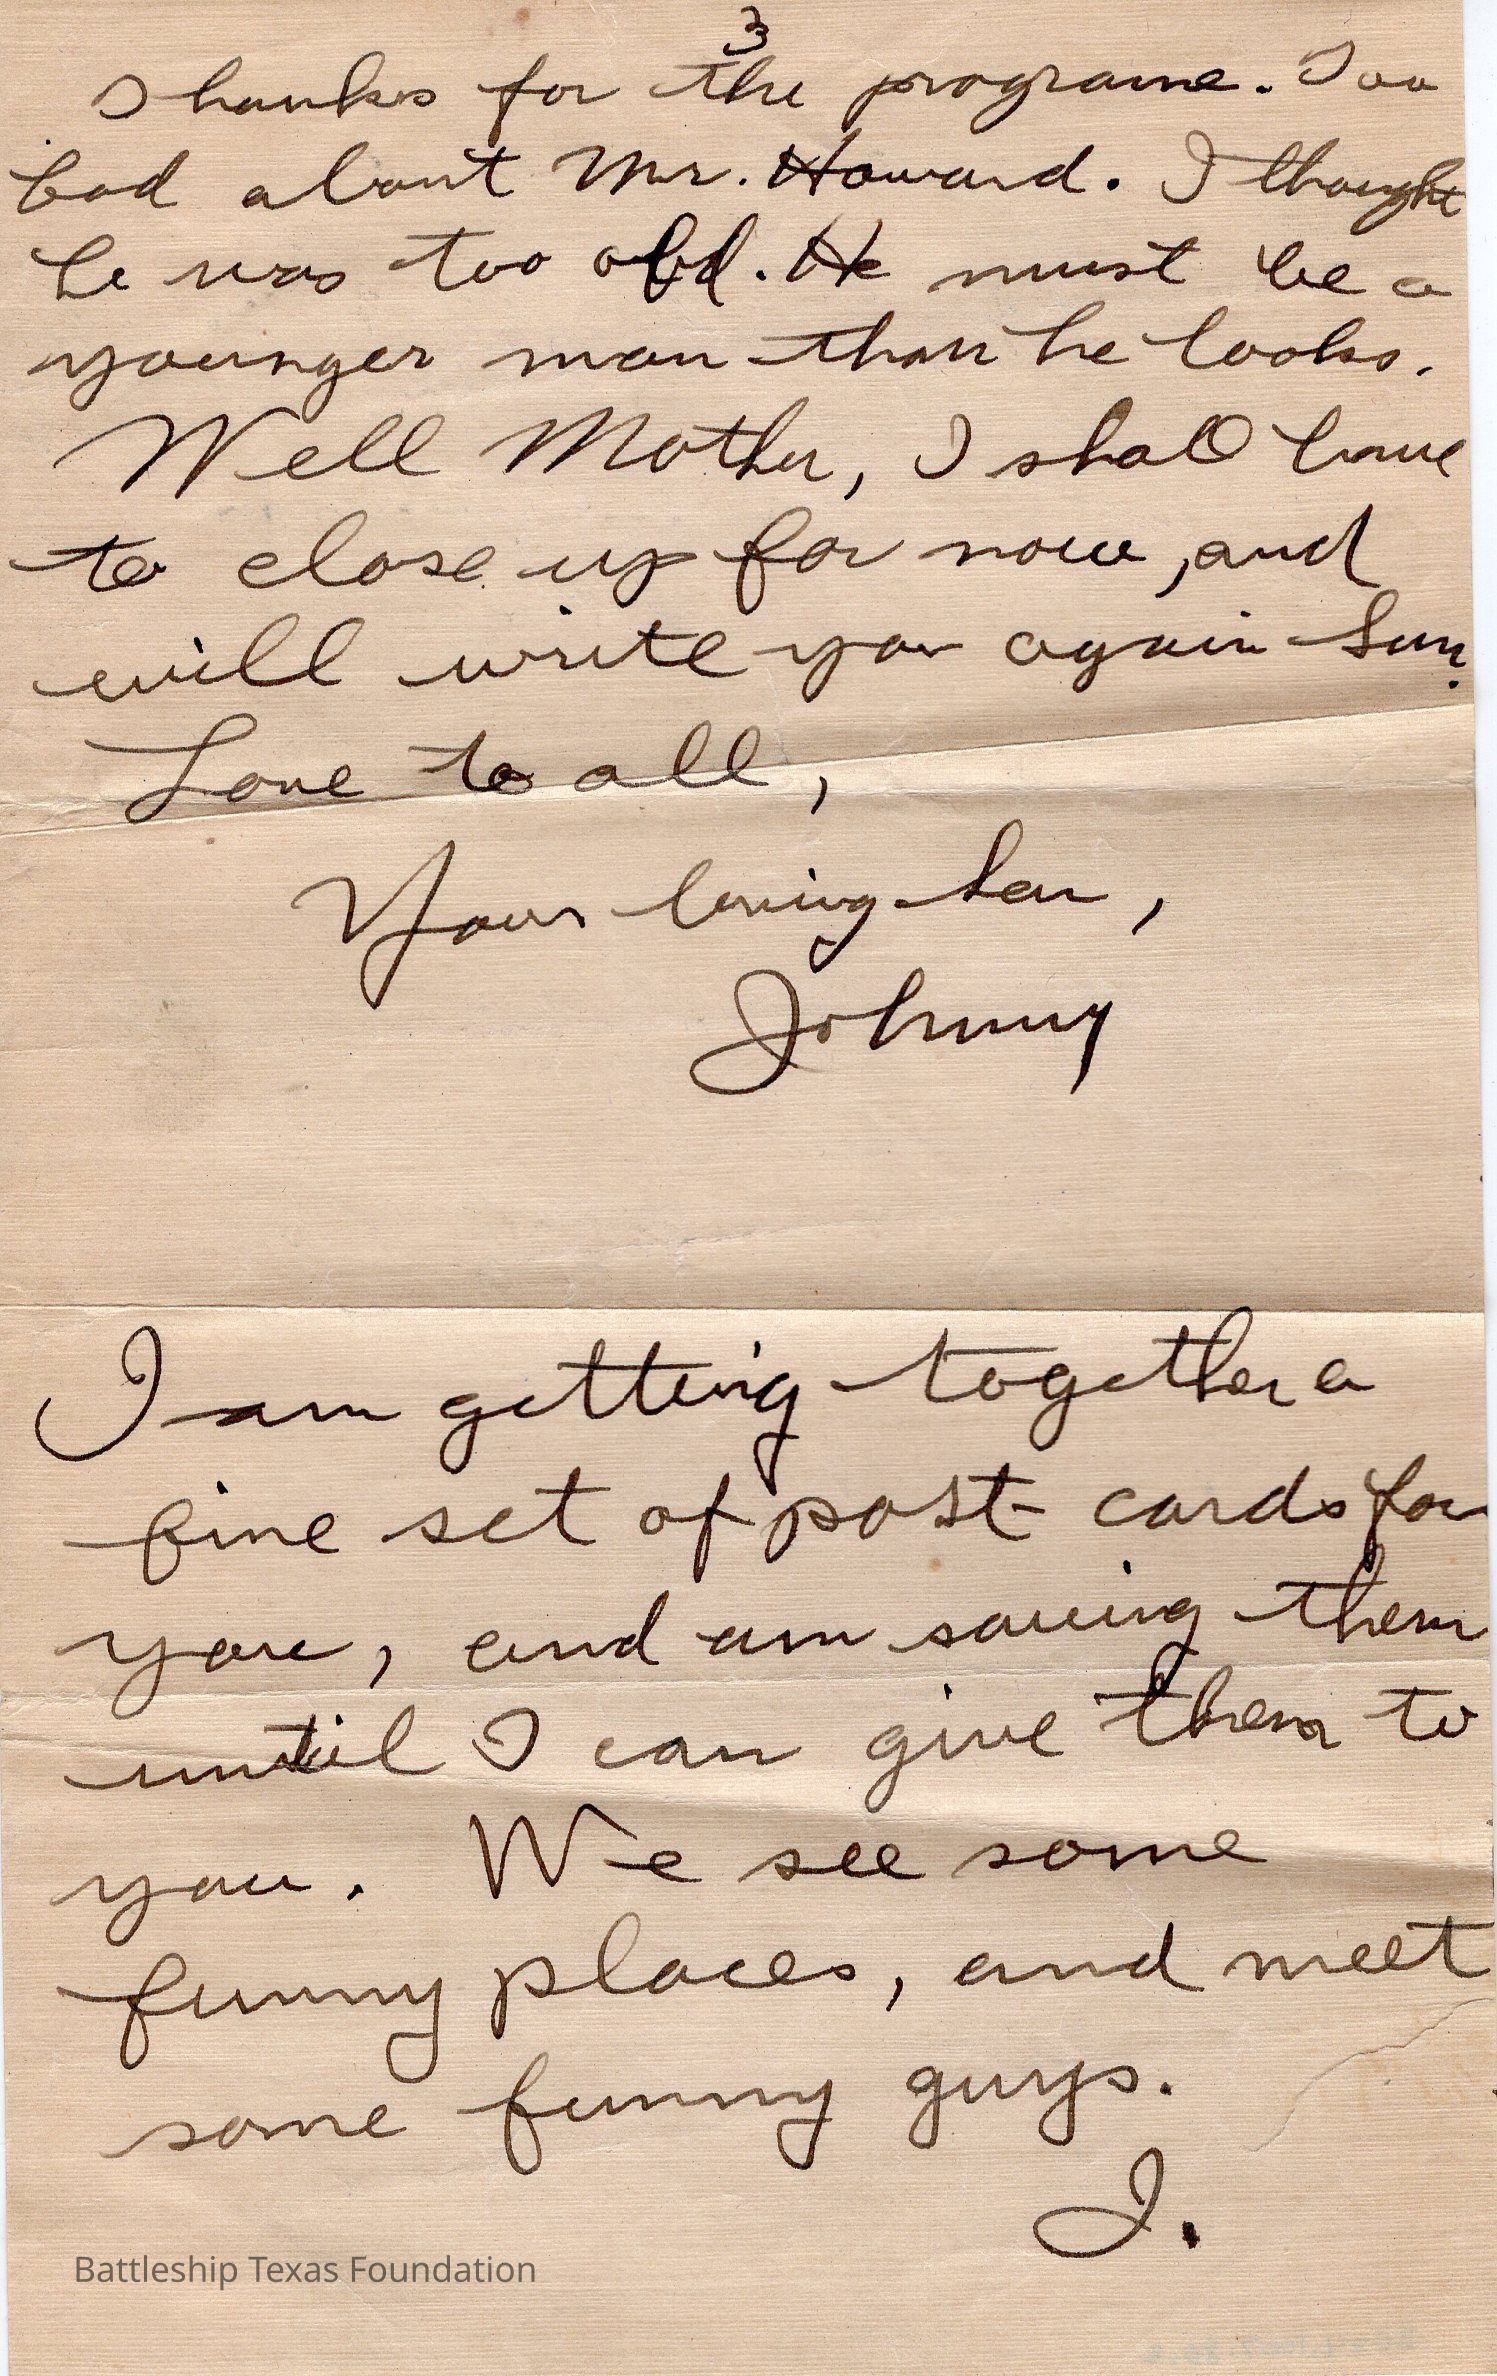 3
Thanks for the programe. Too
bad about Mr. Howard. I thought
he was too old. He must be a
younger man than he looks.
Well Mother, I shall have
to close up for now, and
will write you again Sun.
Love to all,
Your loving Son,
Johnny
I am getting together a
fine set of post cards for
you, and am saving them
until I can give them to
you. We see some
funny places, and meet
some funny guys.
J.
Battleship Texas Foundation